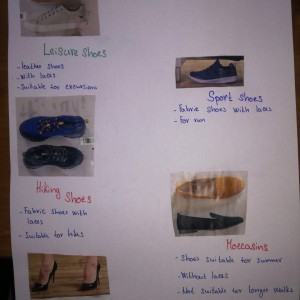 Leisure Shoes
- leather shoes
- With laces
- Suitable for excursions
Sport shoes
- Fabric shoes with laces
- For run
Hiking
Shoes
- Fabric shoes with
laces
- Suitable for hikes
Moccasins
- Shoes suitable for summer
- Without laces
- Not suitable for longer walks